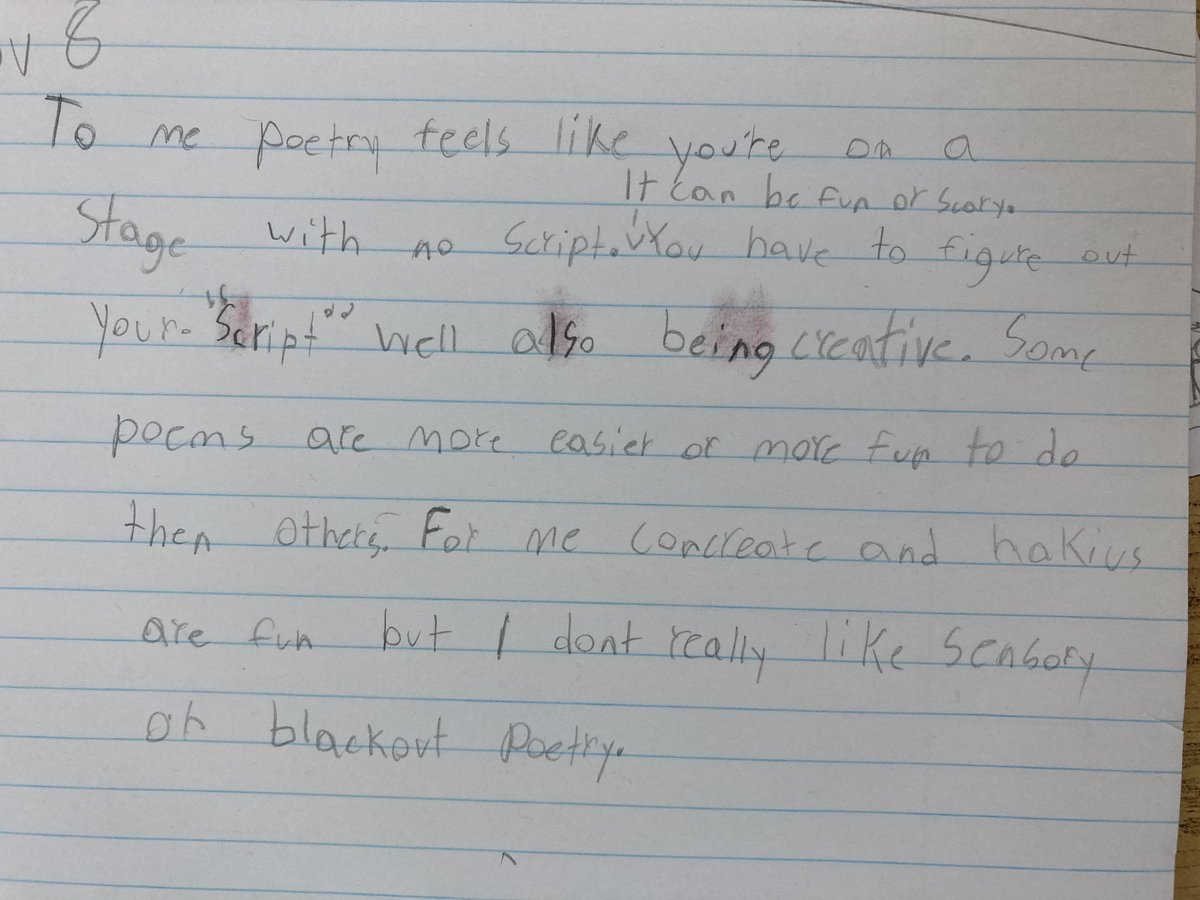 ov 8
To me poetry feels like you're on a
It can be fun or scary.
Stage with no Script. You have to figure out
your. "Script" well also being creative. Some
poems are more easier or more fun to do
then others. For me concreate and hakius
are fun but I dont really like Sensory
or blackout Poetry.